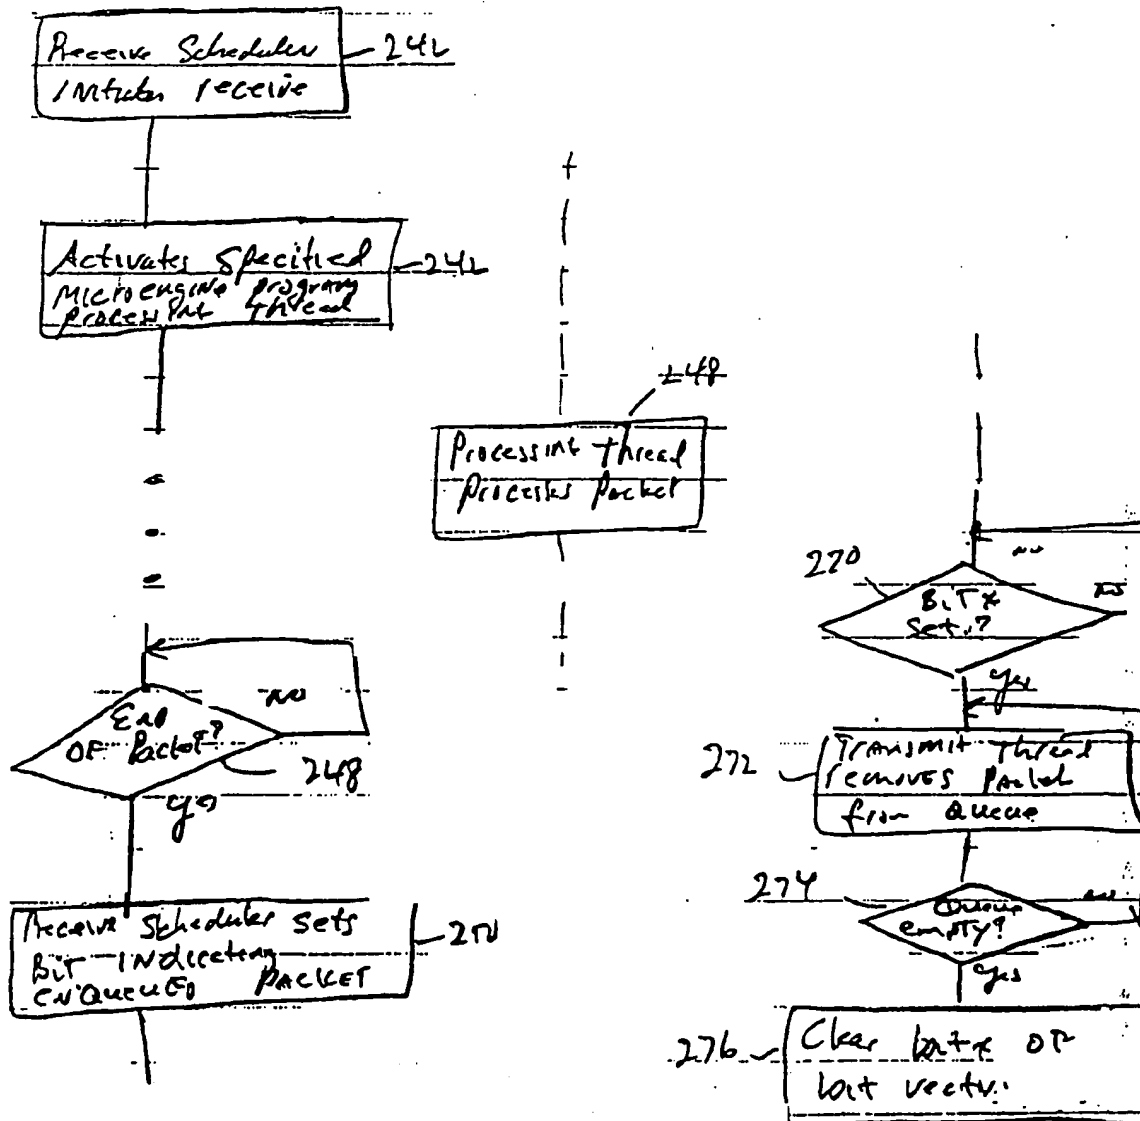 Receive Scheduler
Initiates receive
242
Activates Specified
Microengine program
processing thread
242
248
Processing thread
processes packet
End
OF Packet?
NO
248
yes
Receive Scheduler sets
BIT INdicating
ENQUEUED PACKET
250
NO
270
BIT x
Set?
NO
yes
272
TRANSMIT thread
removes packet
from Queue
274
Queue
empty?
NO
yes
276
Clear bit x OF
bit vector